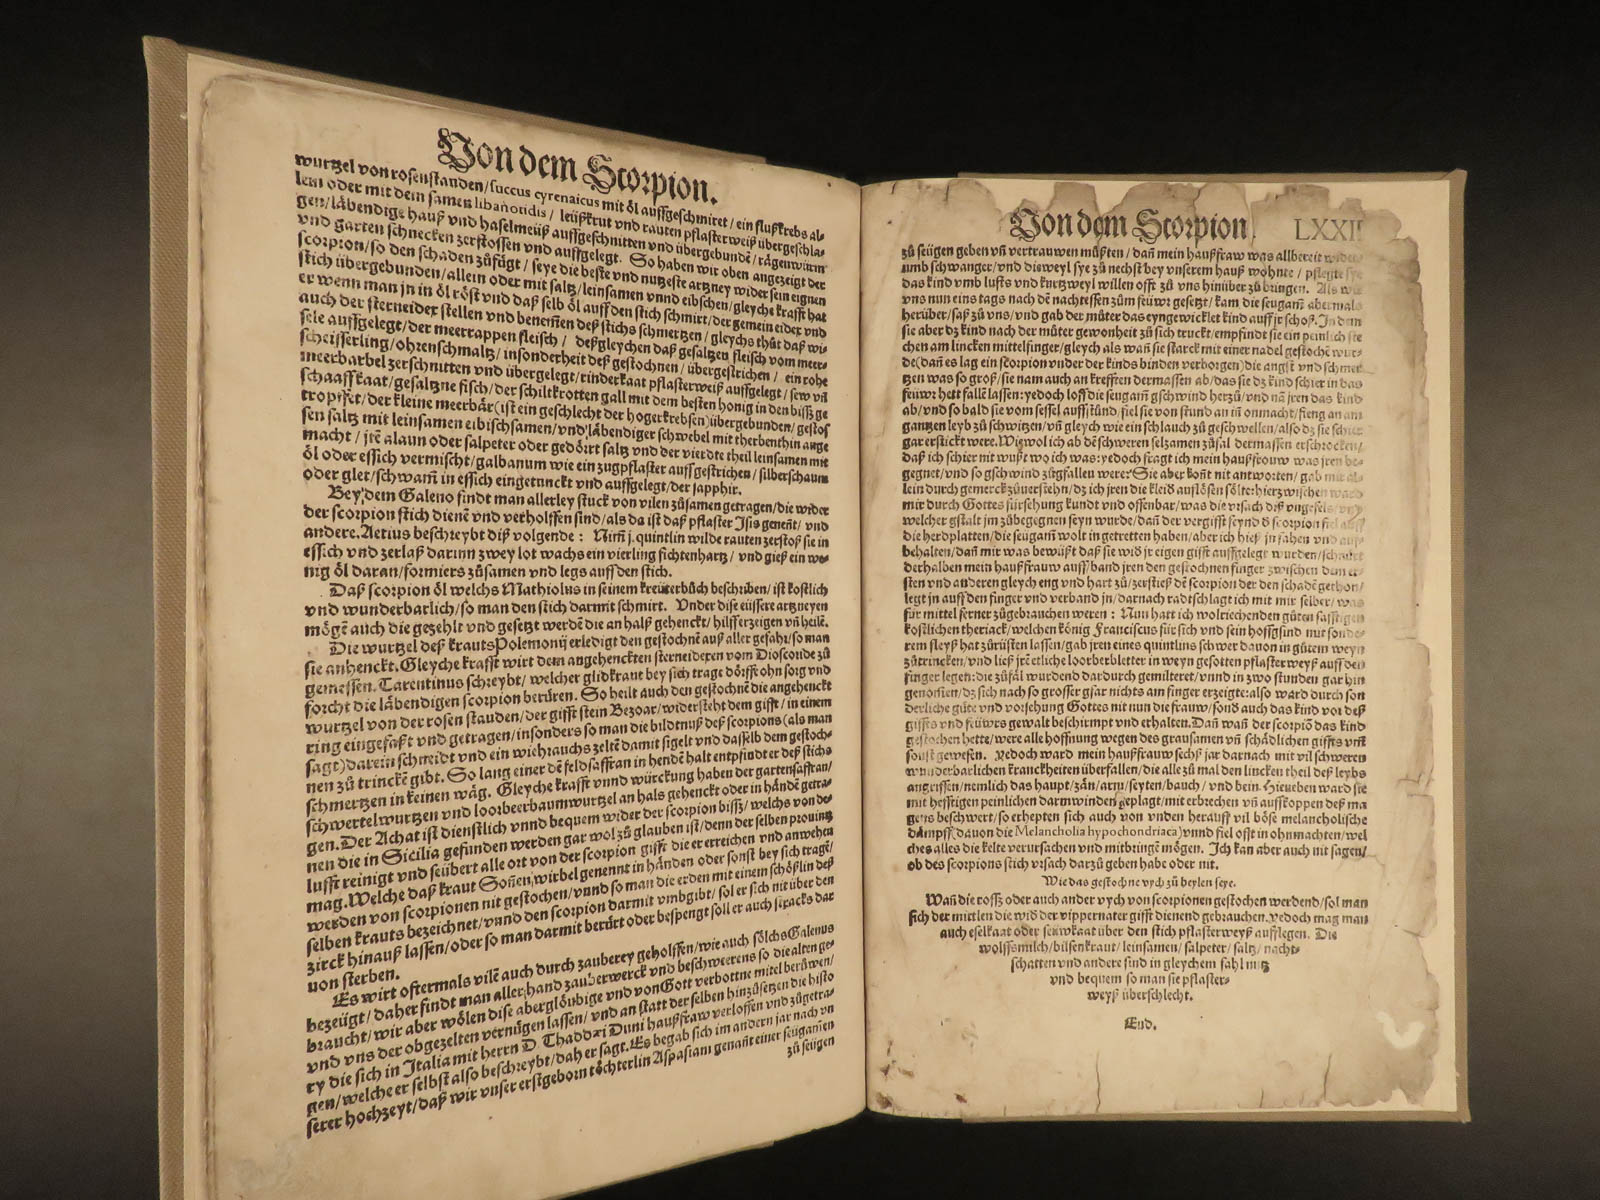 Von dem Scorpion.
wurtzel von rosenstauden/succus cyrenaicus mit öl auffgeschmiret/ein flußkrebs al-
lein oder mit dem samen libanotidis/leüßkrut und rauten pflasterweiß übergeschla-
gen/läbendige hauß vnd haselmeüß auffgeschnitten vnd übergebunde/rägenwürm
vnd garten schnecken zerstossen vnd auffgelegt. So haben wir oben angezeigt der
scorpion/so den schaden zůfügt/seye die beste vnd nutzeste artzney wider sein eignen
stich übergebunden/allein oder mit saltz/leinsamen vnnd eibschen/gleyche krafft hat
er wenn man jn in öl röst vnd daß selb öl auff den stich schmirt/der gemein eider vnd
auch der sterneidex stellen vnd benemen deß stichs schmertzen/gleychs thůt daß wi-
sele auffgelegt/der meertrappen fleisch/deßgleychen daß gesaltzen fleisch vom meer-
scheisserling/ohrenschmaltz/insonderheit deß gestochnen/übergestrichen/ein rohe
meerbarbel zerschnitten vnd übergelegt/rinderkaat pflasterweiß auffgelegt/sew vñ
schaaffkaat/gesaltzne fisch/der schiltkrotten gall mit dem besten honig in den bissz ge
tropffet/der kleine meerbär(ist ein geschlecht der hogerkrebsen)übergebunden/gestos
sen saltz mit leinsamen eibischsamen/vnd läbendiger schwebel mit therbenthin ange
macht/jtē alaun oder salpeter oder gedörrt saltz vnd der vierdte theil leinsamen mit
öl oder essich vermischt/galbanum wie ein zugpflaster auffgestrichen/silberschaum
oder glet/schwam̄ in essich eingetunckt vnd auffgelegt/der sapphir.
Bey dem Galeno findt man allerley stuck von vilen zůsamen getragen/die wider
der scorpion stich dienē vnd verholffen sind/als da ist daß pflaster Isis genent/vnd
andere. Aetius beschreybt diß volgende: Nim̄ j. quintlin wilde rauten zerstoß sie in
essich vnd zerlaß darinn zwey lot wachs ein vierling fichtenhartz/vnd gieß ein we-
nig öl daran/formiers zůsamen vnd legs auff den stich.
Daß scorpion öl welchs Mathiolus in seinem kreüterbůch beschriben/ist kostlich
vnd wunderbarlich/so man den stich darmit schmirt. Vnder dise eüssere artzneyen
mögē auch die gezehlt vnd gesetzt werdē die an halß gehenckt/hilff erzeigen vñ heilē.
Die wurtzel deß krauts Polemonij erledigt den gestochnē auß aller gefahr/so man
sie anhenckt. Gleyche krafft wirt dem angehenckten sterneideren vom Dioscoride zů
gemessen. Tarentinus schreybt/welcher glidkraut bey sich trage dörffe ohn sorg vnd
forcht die läbendigen scorpion berüren. So heilt auch den gestochnē die angehenckt
wurtzel von der rosen stauden/der gifft stein Bezoar/widersteht dem gifft/in einem
ring eingefaßt vnd getragen/insonders so man die bildtnuß deß scorpions(als man
sagt)darein schneidt vnd ein wiehrauchs zeltē damit siglet vnd dasselb dem gestoch-
nen zů trinckē gibt. So lang einer dē feldsaffran in hendē halt entpfindt er deß stichs
schmertzen in keinen wäg. Gleyche krafft vnnd würckung haben der gartensaffran/
schwertelwurtzen vnd loorbeerbaumwurtzel an hals gehenckt oder in händē getra-
gen. Der Achat ist dienstlich vnnd bequem wider der scorpion bissz/welchs von de-
nen die in Sicilia gefunden werden gar wol zů glauben ist/denn der selben prouintz
lufft reinigt vnd seübert alle ort von der scorpion gifft die er erreichen vnd anwehen
mag. Welche daß kraut Soñenwirbel genennt in händen oder sonst bey sich tragē/
werden von scorpionen nit gestochen/vnnd so man die erden mit einem schößlin deß
selben krauts bezeichnet/vnnd den scorpion darmit vmbgibt/sol er sich nit über den
zirck hinauß lassen/oder so man darmit berürt oder bespengt soll er auch stracks dar
von sterben.
Es wirt oftermals vilē auch durch zauberey geholffen/wie auch sölchs Galenus
bezeügt/daher findt man allerhand zauberwerck vnd beschweerens so die alten ge-
braucht/wir aber wölen dise aberglöubige vnd von Gott verbottne mitel berůwen/
vnd vns der obgezelten vernügen lassen/vnd an statt der selben hinzůsetzen die histo
ry die sich in Italia mit herrn D. Thaddæi Duni haußfraw verloffen vnd zůgetra-
gen/welche er selbst also beschreybt/daher sagt. Es begab sich im andern jar nach vn
serer hochzeyt/daß wir vnser erstgeborn töchterlin Aspasiam genañt einer seugam̄en
zů seügen
Von dem Scorpion LXXII
zů seügen geben vñ vertrauwen müßten/dañ mein haußfraw was allbereit wider-
umb schwanger/vnd dieweyl sye zů nechst bey vnserem hauß wohnte/pflegte sye
das kind vmb lusts vnd kurtzweyl willen offt zů vns hinüber zů bringen. Als wir
vns nun eins tags nach dē nachtessen zům feüwr gesetzt/kam die seugam̄ abermals
herüber/saß zů vns/vnd gab der můter das eyngewicklet kind auff jr schoß. In dem
sie aber dz kind nach der můter gewonheit zů sich truckt/empfindt sie ein peinlich ste
chen am lincken mittelfinger/gleych als wañ sie starck mit einer nadel gestochē wur-
de(dañ es lag ein scorpion vnder der kinds binden verborgen)die angst vnd schmer
tzen was so groß/sie nam auch an krefften dermassen ab/das sie dz kind schier in das
feüwr hett fallē lassen: yedoch loff die seugam̄ gschwind herzů/vnd nā jren das kind
ab/vnd so bald sie vom sessel auffstůnd/fiel sie von stund an in onmacht/fieng an am
gantzen leyb zů schwitzen/vñ gleych wie ein schlauch zů geschwellen/also dz sie schier
gar erstickt were. Wiewol ich ab dē schweren selzamen zůfal dermassen erschrocken/
daß ich schier nit wußt wo ich was: yedoch fragt ich mein haußfrouw was jren be-
gegnet/vnd so gschwind zůgfallen were? Sie aber koñt nit antworten/gab mir al-
lein durch gemerck zůuerstehn/dz ich jren die kleid auflösen sölte: hierzwischen ward
mir durch Gottes fürsehung kundt vnd offenbar/was die vrsach diß vngefels/vnd
welcher gstalt jm zůbegegnen seyn wurde/dañ der vergifft feynd d scorpion fiel auff
die herdplatten/die seugam̄ wolt in getretten haben/aber ich hieß jn fahen vnd auff
behalten/dañ mir was bewüßt daß sie wid jr eigen gifft auffgelegt wurden/schnürt
derhalben mein haußfrauw auff/band jren den gestochnen finger zwischen dem er-
sten vnd anderen gleych eng vnd hart zů/zerstieß dē scorpion der den schadē gethon/
legt jn auff den finger vnd verband jn/darnach radtschlagt ich mit mir selber/was
für mittel ferner zůgebrauchen weren: Nun hatt ich wolriechenden gůten safftigen
kostlichen theriack/welchen könig Franciscus für sich vnd sein hoffgsind mit sonde-
rem fleyß hat zůrüsten lassen/gab jren eines quintlins schwer dauon in gůtem weyn
zůtrincken/vnd ließ jrē etliche loorberbletter in weyn gesotten pflasterweyß auff den
finger legen: die zůfäl wurdend dardurch gemilteret/vnnd in zwo stunden gar hin
genom̄en/dz sich nach so grosser gfar nichts am finger erzeigte: also ward durch son
derliche güte vnd vorsehung Gottes nit nun die frauw/sond auch das kind vor deß
giffts vnd feüwrs gewalt beschirmpt vnd erhalten. Dañ wañ der scorpiō das kind
gestochen hette/were alle hoffnung wegen des grausamen vñ schädlichen giffts vm̄
sonst gewesen. Yedoch ward mein haußfrauw sechß jar darnach mit vil schweren
wunderbarlichen kranckheiten überfallen/die alle zů mal den lincken theil deß leybs
angriffen/nemlich das haupt/zän/arm/seyten/bauch/vnd bein. Hieneben ward sie
mit hefftigen peinlichen darmwinden geplagt/mit erbrechen vñ auffkoppen deß ma
gens beschwert/so erhepten sich auch von vnden vff vil böse melancholische
dämpff(dauon die Melancholia hypochondriaca)vnnd fiel offt in ohnmachten/wel
ches alles die kelte verursachen vnd mitbringē mögen. Ich kan aber auch nit sagen/
ob des scorpions stich vrsach darzů geben habe oder nit.
Wie das gestochne vych zů heylen seye.
Wañ die rossz oder auch ander vych von scorpionen gestochen werdend/sol man
sich der mittlen die wid der vippernater gifft dienend gebrauchen. yedoch mag man
auch eselkaat oder seüwkaat über den stich pflasterweyß aufflegen. Die
wolffsmilch/bilsenkraut/leinsamen/salpeter/saltz/nacht-
schatten vnd andere sind in gleychem fahl nutz
vnd bequem so man sie pflaster-
weyß überschlecht.
End.